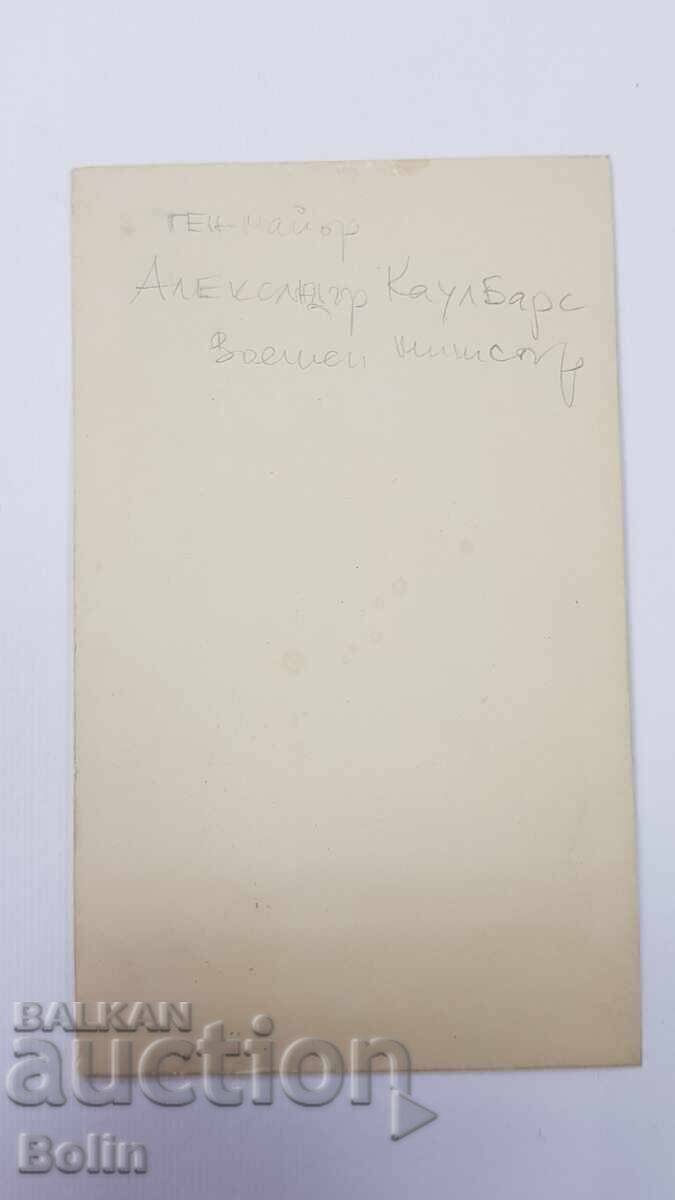 ген-майор
Александър Каулбарс
Военен министър
BALKAN
auction
Bolin